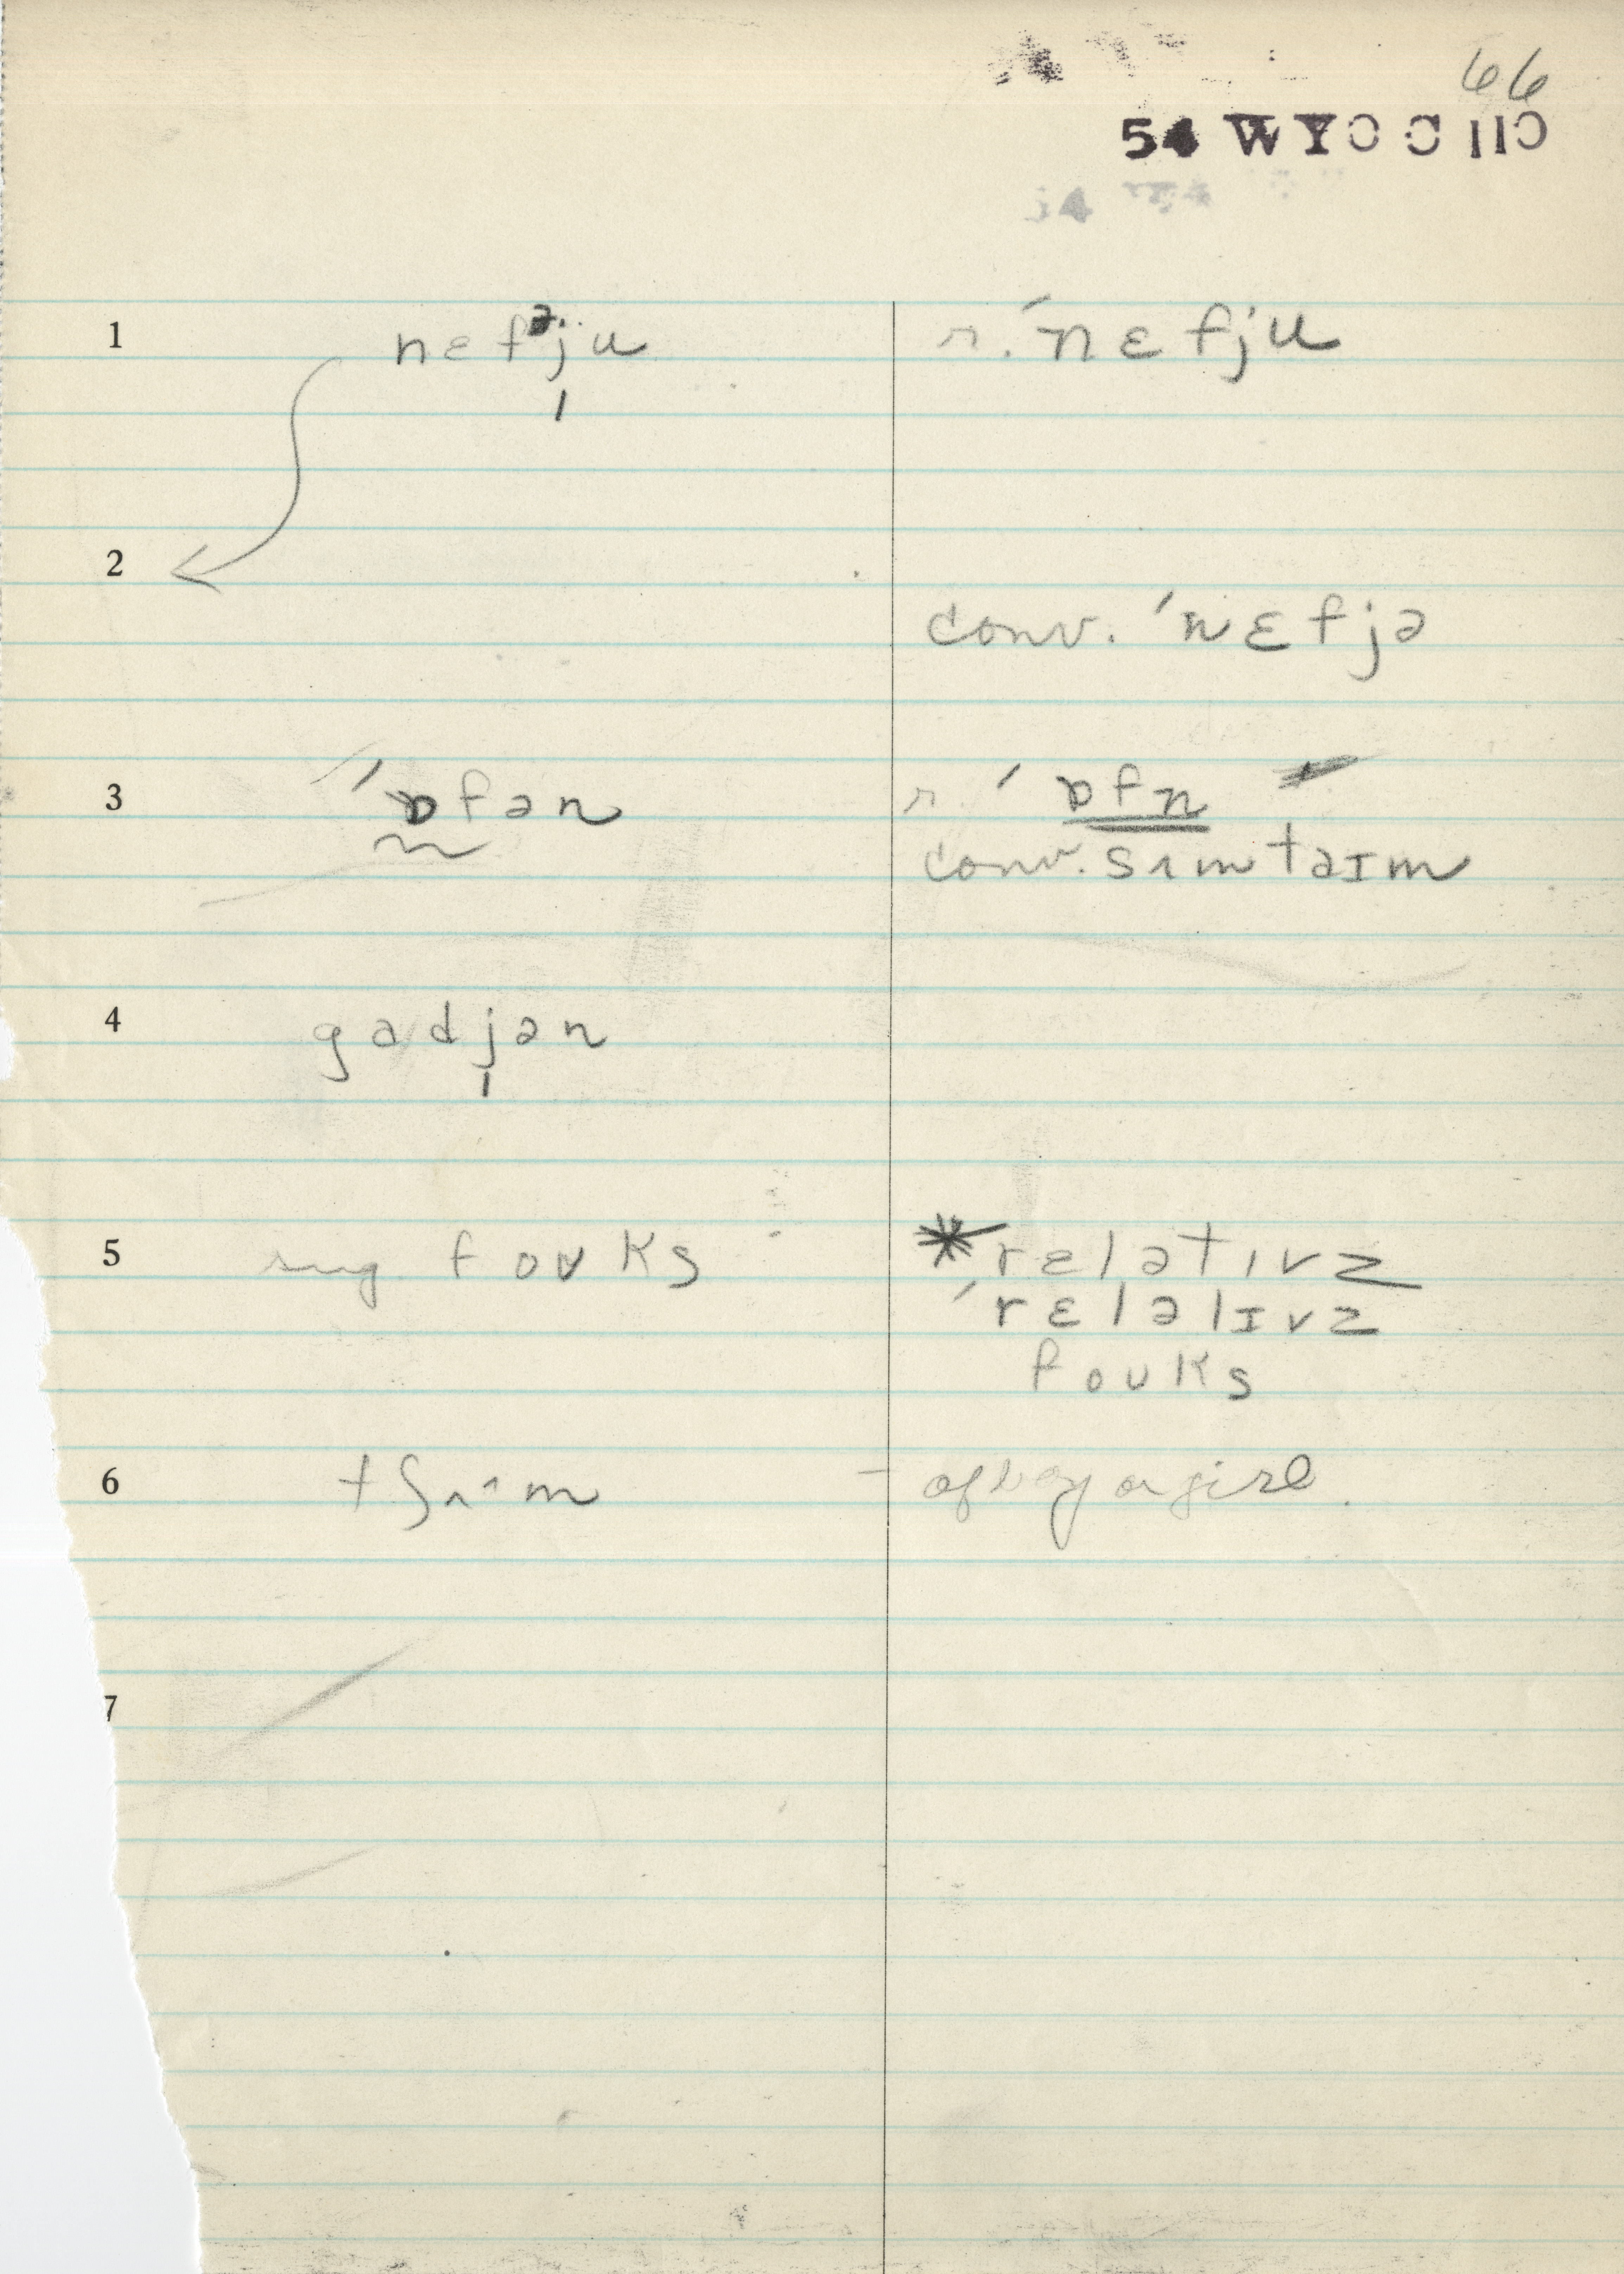 66
54 WYOC 110
1 nɛfəju r. ˈnɛfju
2
conv. ˈnɛfjə
3 ˈɒfən r. ˈɒfn
conv. sʌmtaɪm
4 gadjən
5 my foʊks *relətɪvz
ˈrɛləlɪvz
foʊks
6 tʃʌˑm – of boy or girl.
7